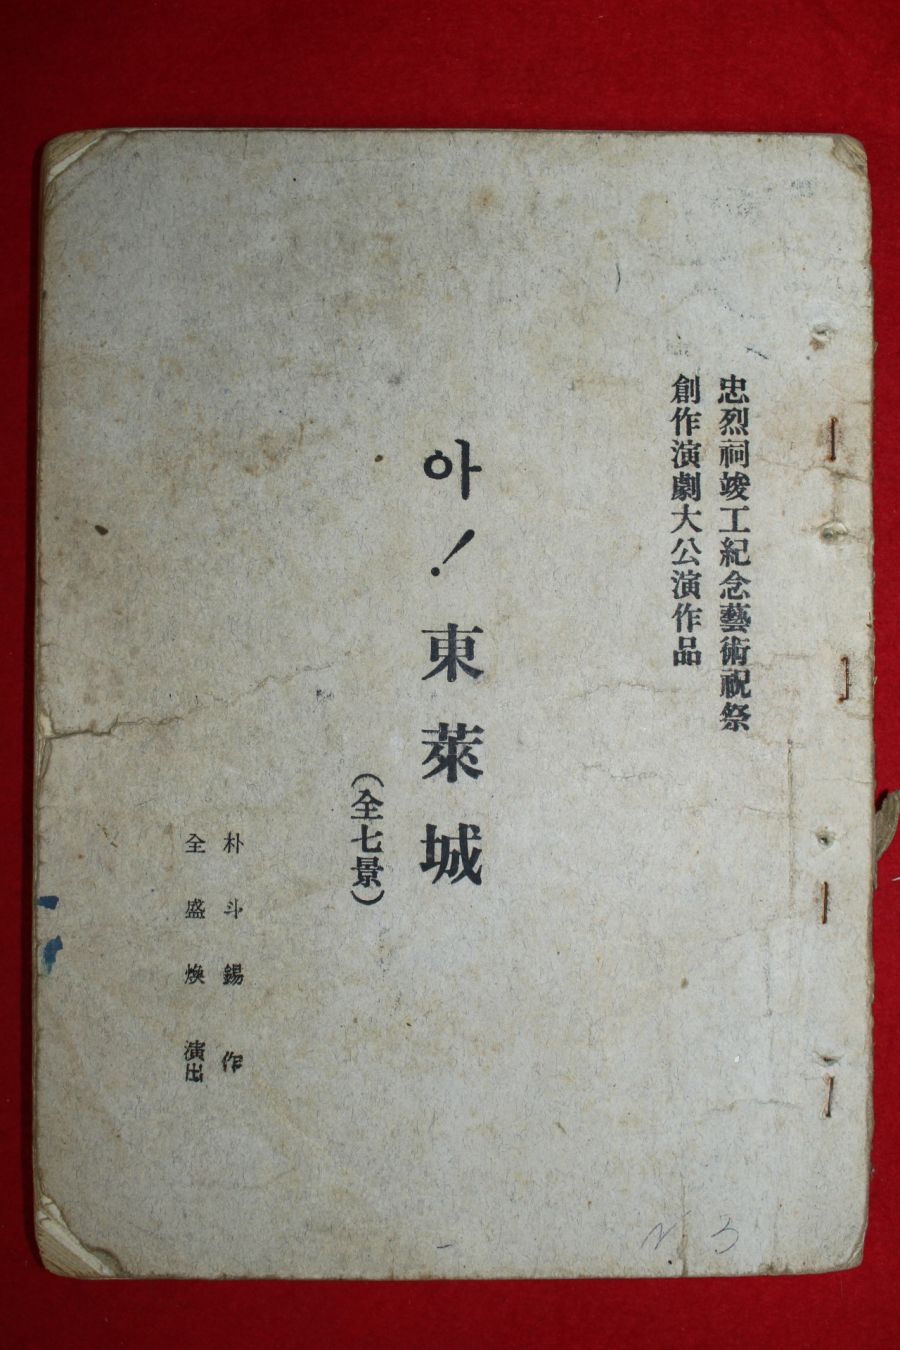 忠烈祠竣工紀念藝術祝祭
創作演劇大公演作品
아! 東萊城
(全七景)
朴斗錫 作
全盛煥 演出
N 3